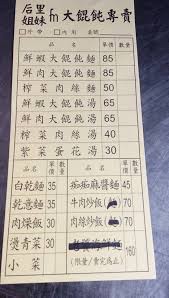 后里 姐妹 fm 大餛飩專賣
□外帶 □內用 桌號
品名 單價 數量
鮮蝦大餛飩麵 85
鮮肉大餛飩麵 65
榨菜肉絲麵 65
鮮蝦大餛飩湯 85
鮮肉大餛飩湯 65
榨菜肉絲湯 40
紫菜蛋花湯 30
品名 單價 數量 品名 單價 數量
白乾麵 35 痴痴麻醬麵 45
乾意麵 35 牛肉炒飯 70
肉燥飯 30 肉絲炒飯 70
燙青菜 30
小菜 (限量/賣完為止) 160